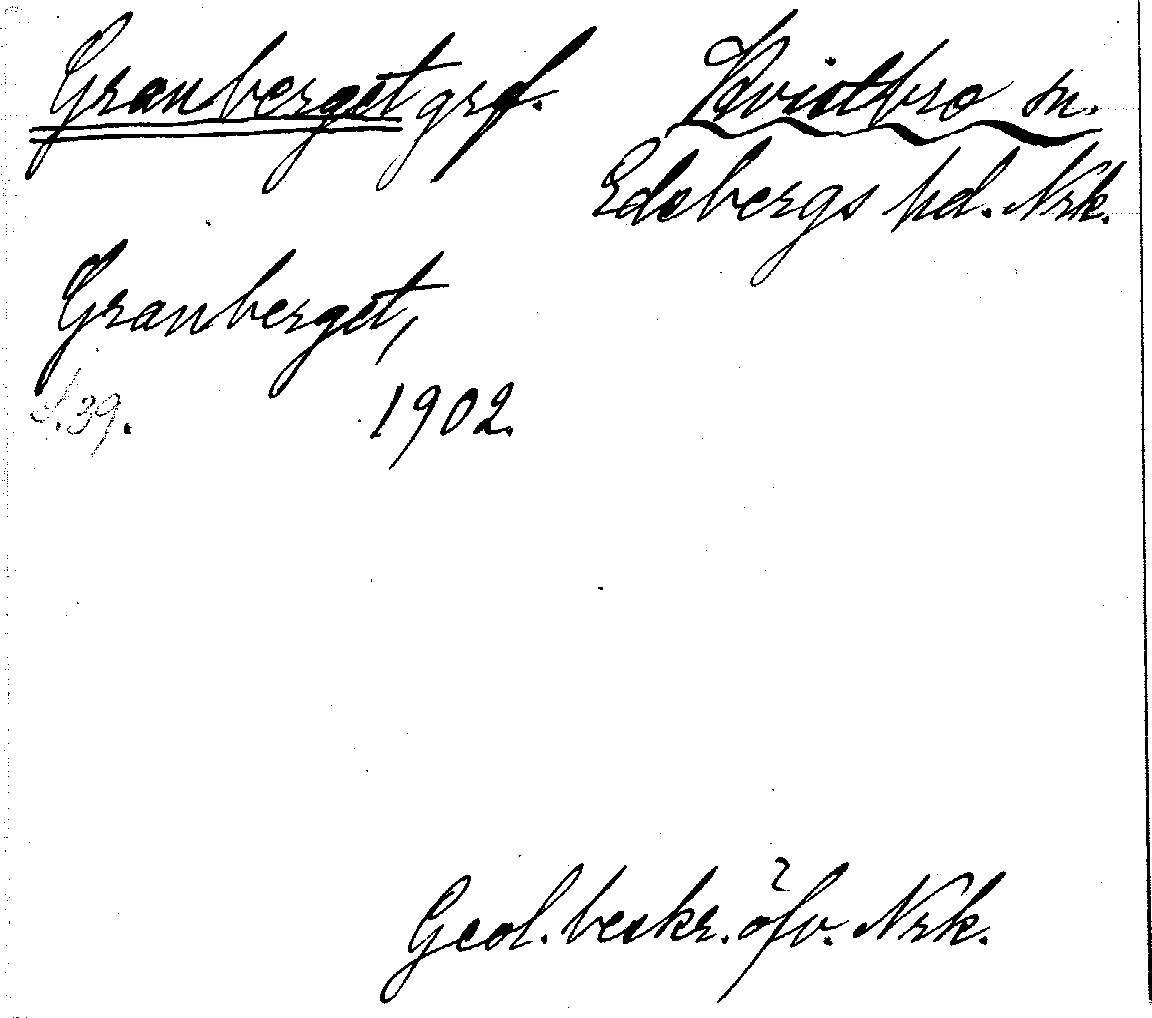 Granberget grf. Kvistbro sn.
Edsbergs hd. Nrk.
Granberget,
S. 39. 1902.
Geol. beskr. öfv. Nrk.